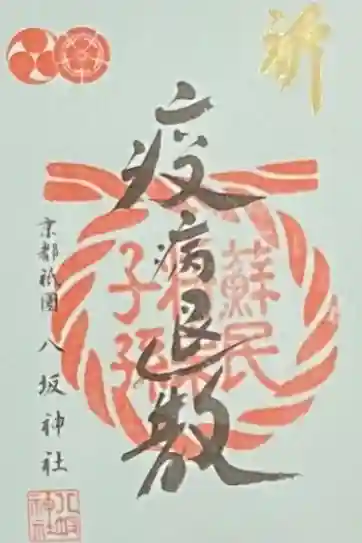 祈
疫病退散
蘇民
子孫
京都祇園 八坂神社
八坂
神社